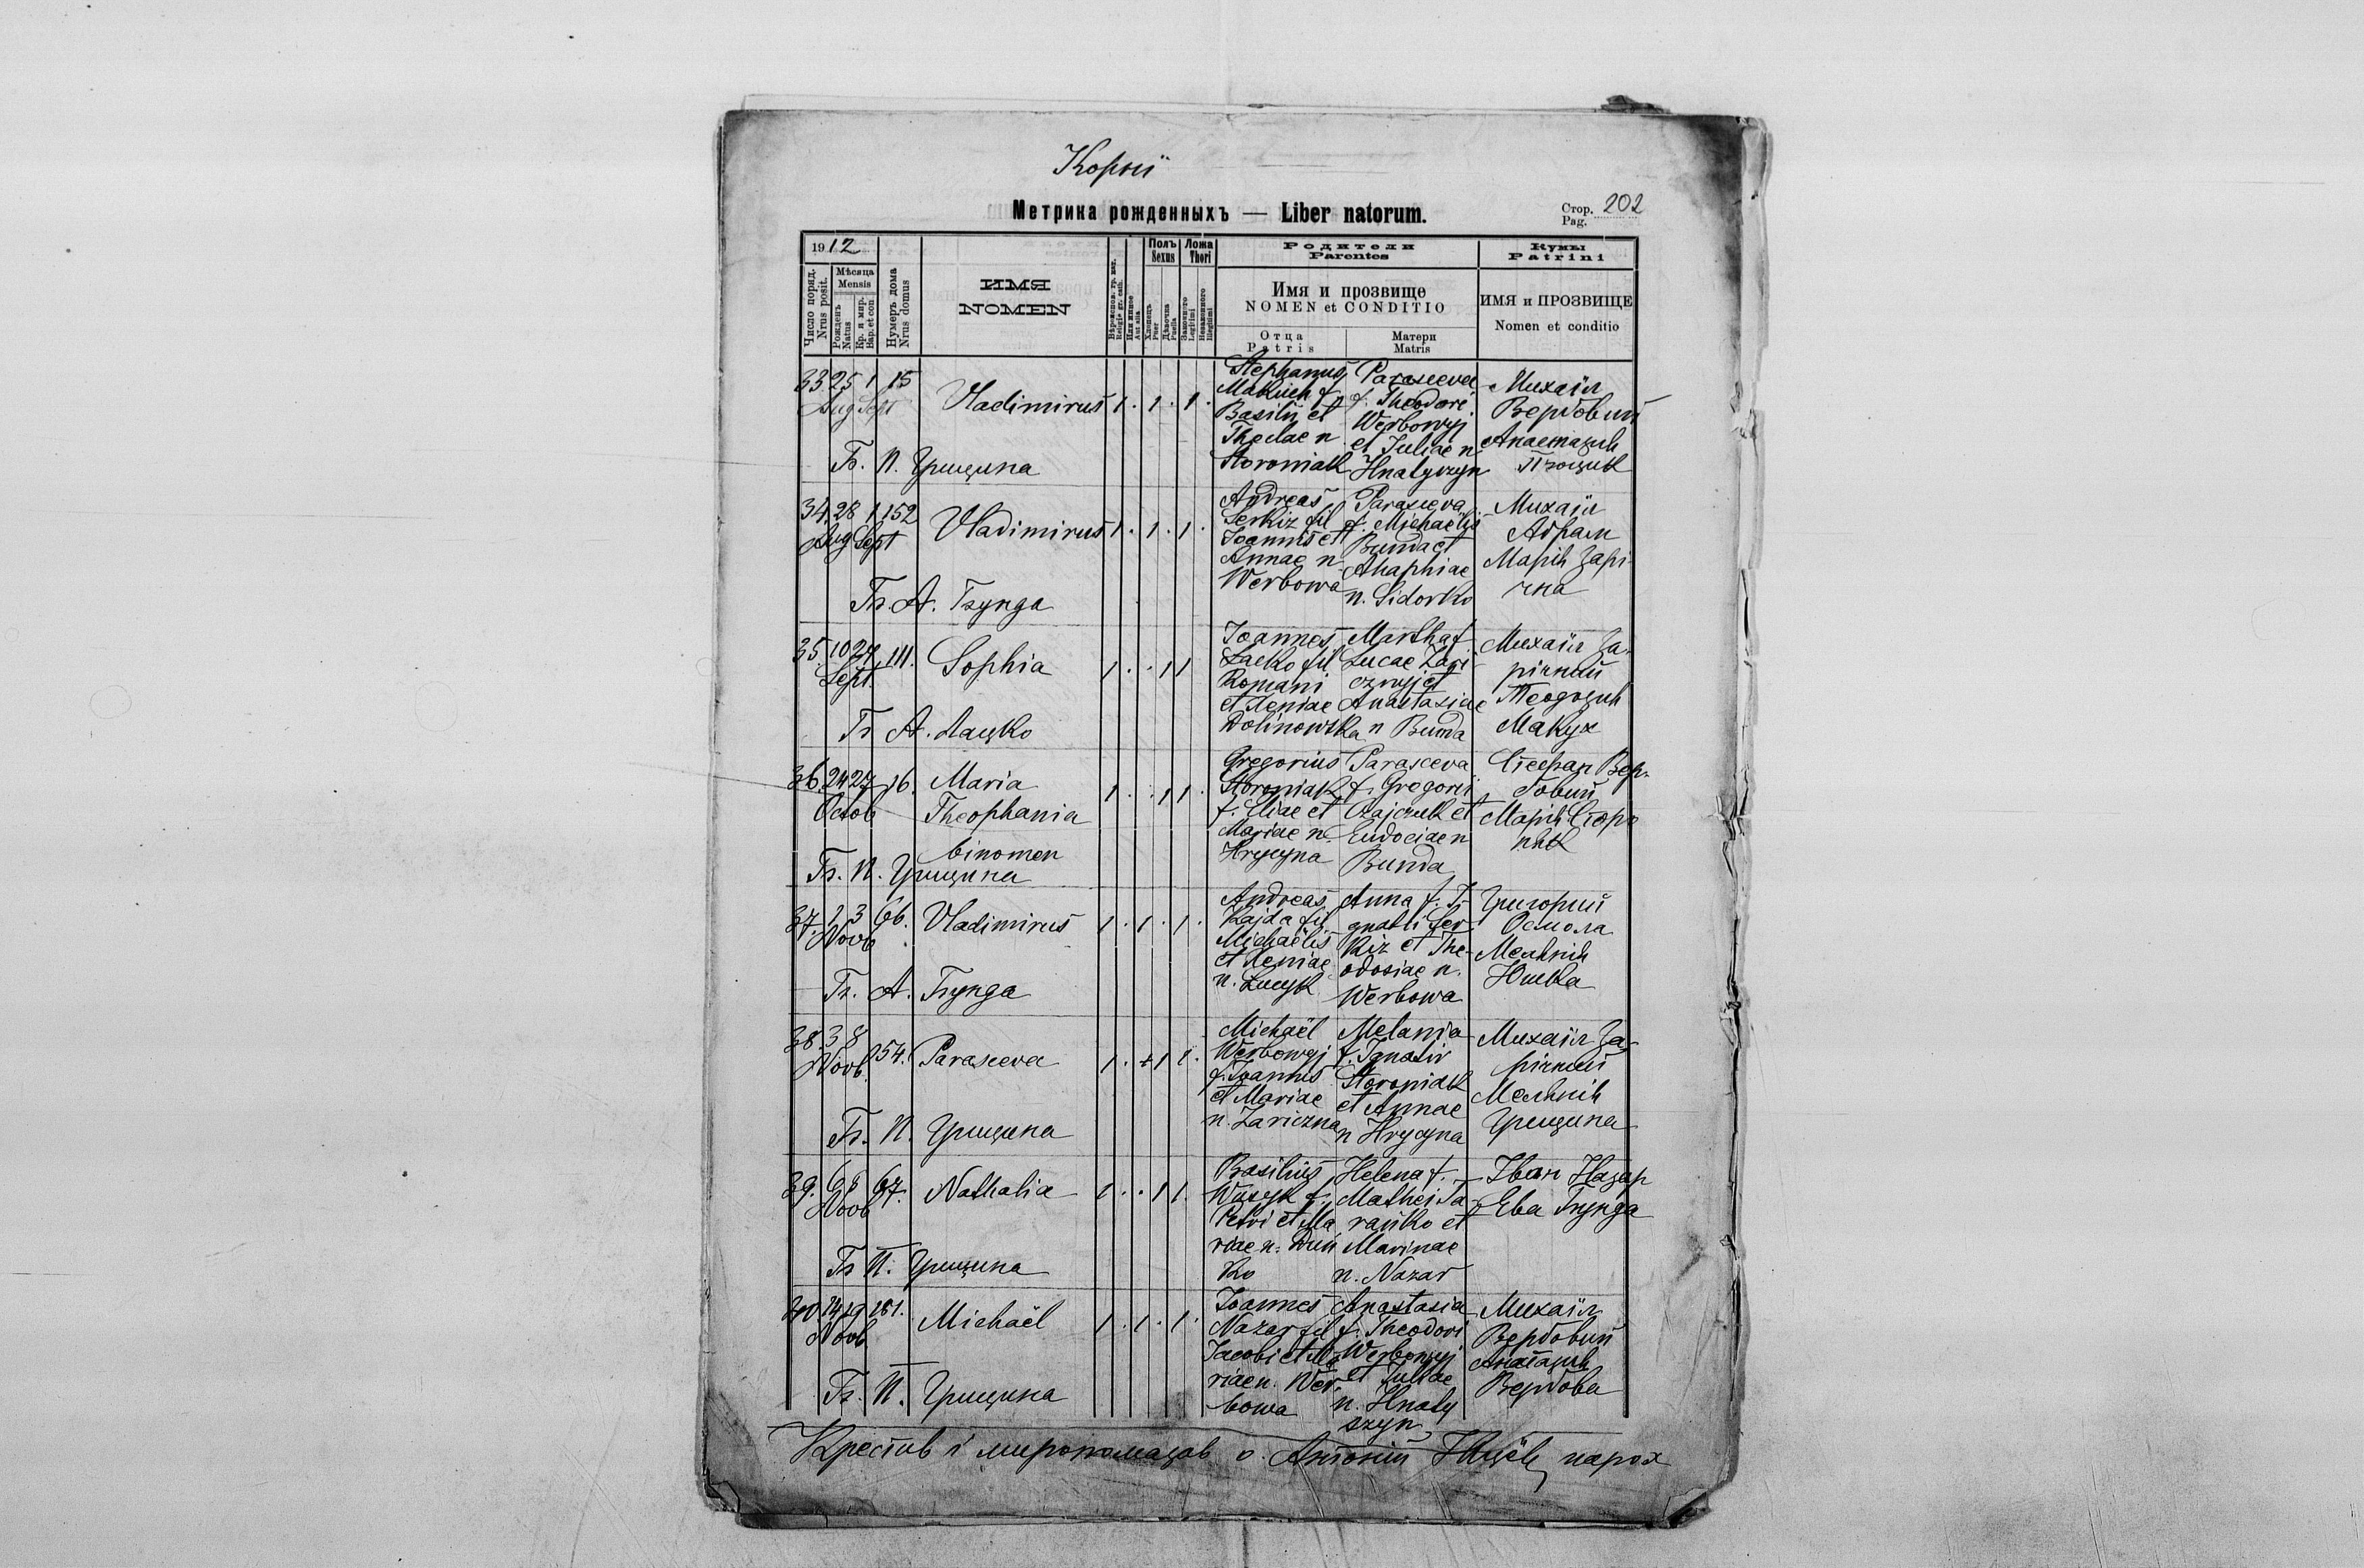 Корнї
Метрика рожденныхъ — Liber natorum.
Стор. 202
Pag.
1912
Число поряд.
Nrus posit.
Мѣсяца
Mensis
Рожденъ
Natus
Кр. и мир.
Bap. et con
Нумеръ дома
Nrus domus
ИМЯ
NOMEN
Или инное
Aut alia
Полъ
Sexus
Хлопецъ
Puer
Дѣвочка
Puella
Ложа
Thori
Законного
Legitimi
Незаконного
Illegitimi
Родители
Parentes
Имя и прозвище
NOMEN et CONDITIO
Отца
Patris
Матери
Matris
Кумы
Patrini
ИМЯ и ПРОЗВИЩЕ
Nomen et conditio
33. 25 1 15
Aug Sept
Vladimirus 1 . 1 . 1 .
Stephanus
Makuch f.
Basilii et
Theclae n
Storoniak
Parasceva
f. Theodori
Werbowyj
et Juliae n.
Hnatyszyn
Михаіл
Вербовий
Анастазия
Б. П. Грицина
34. 28 1 152
Aug Sept
Vladimirus 1 . 1 . 1 .
Andreas
Serkiz fil
Joannis et
Annae n
Werbowa
Parasceva
f. Michaelis
Bunda et
Ahaphiae
n. Sidorko
Михаіл
Абрам
Марія Зарі-
чна
Б. А. Бунда
35. 10 27 111.
Sept.
Sophia 1 . . 1 1
Joannes
Lacko fil
Romani
et Xeniae
Dolinowska
Martha f
Lucae Zari
cznyj et
Anastasiae
n Bunda
Михаіл За-
річний
Теодозия
Макух
Б А. Лацко
36. 24 27 16.
Octob
Maria
Theophania
binomen
1 . . 1 1 .
Gregorius
Storoniak
f. Eliae et
Mariae n.
Hrycyna
Parasceva
f. Gregorii
Czajczuk et
Eudociae n
Bunda
Стефан Вер-
бовий
Марія Сторо
няк
Б. П. Грицина
37. 1 3 66.
Novb
Vladimirus 1 . 1 . 1 .
Andreas
Kajda fil
Michaëlis
et Xeniae
n. Lucyk
Anna f. I-
gnatii Ser-
kiz et The-
odosiae n.
Werbowa
Григорий
Осмола
Меланія
Юшка
Б. А. Бунда
38. 3 8 154.
Novb.
Parasceva 1 . + 1 1 .
Michaël
Werbowyj
f. Joannis
et Mariae
n. Zariczna
Melania
f. Ignatii
Storoniak
et Annae
n Hrycyna
Михаіл За-
річний
Меланія
Грицина
Б. П. Грицина
39. 6 8 67.
Novb
Nathalia 1 . . 1 1.
Basilius
Wusyk f.
Petri et Ma
riae n. Duń
ko
Helena f.
Mathei Ta-
rańko et
Marinae
n. Nazar
Іван Назар
Ева Бунда
Б П. Грицина
40 14 19 181.
Novb.
Michaël 1 . 1 . 1 .
Joannes
Nazar fil
Jacobi et Ma
riae n. Wer-
bowa
Anastasia
f. Theodori
Werbowyj
et Juliae
n. Hnaty
szyn
Михаіл
Вербовий
Анастазия
Вербова
Б. П. Грицина
Крестив і миропомазав о. Антоній парох